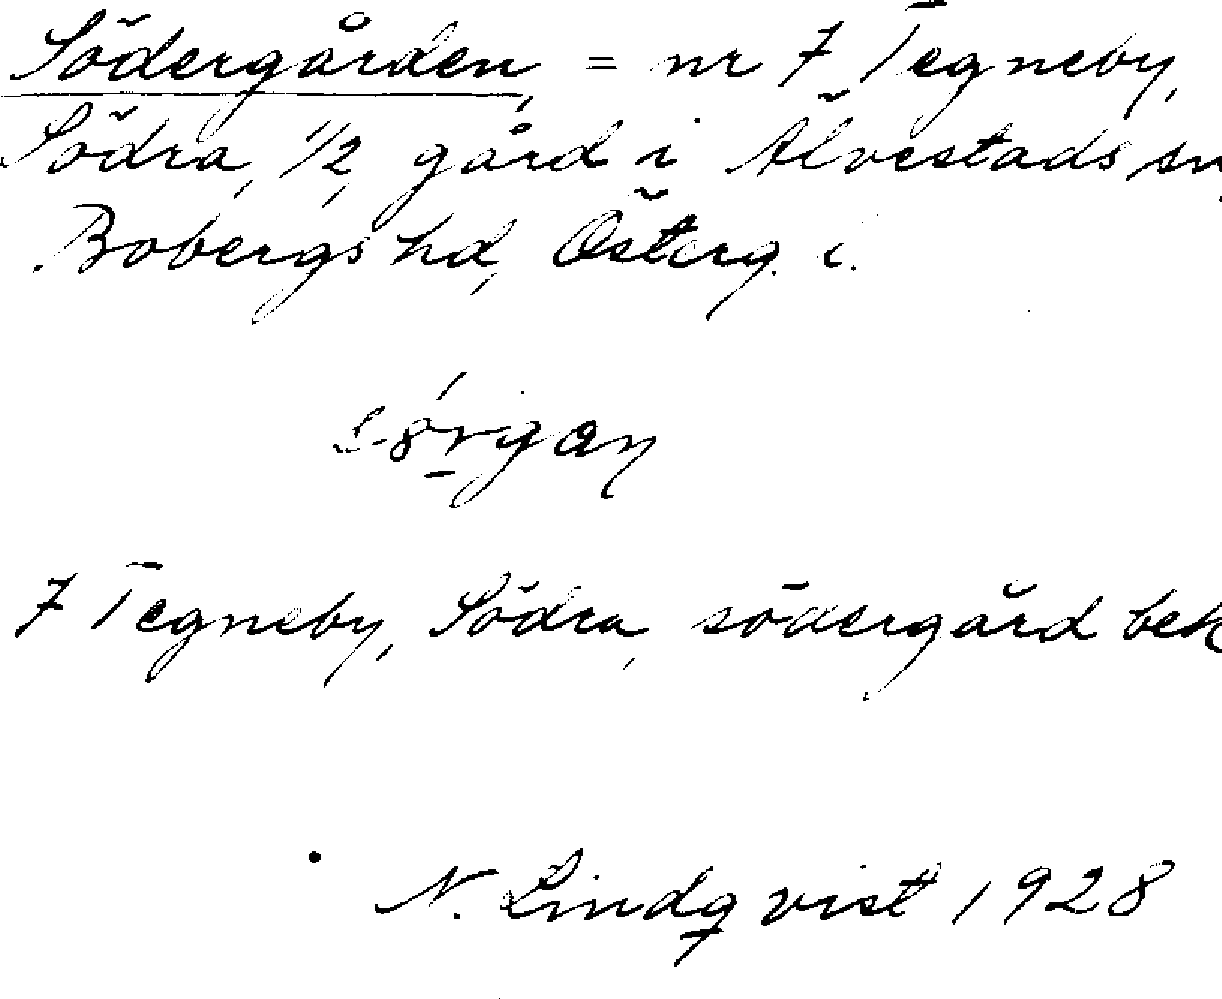 Södergården, = nr 7 Tegneby,
Södra, 1/2, gård i Älvestads sn,
Bobergs hd, Österg. l.
7 Tegneby, Södra, södergård bek
N. Lindqvist 1928